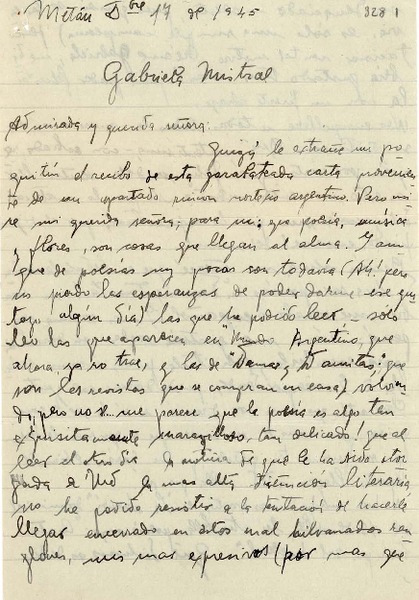 Metán Dbre 17 de 1945
328 1
Gabriela Mistral
Admirada y querida señora:
Quizá le extrañe un po
quitín el recibo de esta garabateada carta provenien
te de un apartado rincon norteño argentino. Pero mi
re mi querida señora; para mi: que poesía, música
y flores, son cosas que llegan al alma. Y aun
que de poesías muy pocas son todavía (Ah! pero
no pierdo las esperanzas de poder darme ese gus
tazo algún día) las que he podido leer – solo
leo las que aparecen en "Mundo Argentino, que
ahora ya no trae, y las de "Damas y Damitas" que
son las revistas que se compran en casa)
pero no se.. me parece que la poesía es algo tan
exquisitamente maravilloso, tan delicado! que al
leer el otro día la noticia de que le ha sido otor
gada a Ud la mas alta distinción literaria
no he podido resistir a la tentación de hacerle
llegar encerrado en estos mal hilvanados ren
glones, mis mas expresivos (por mas que